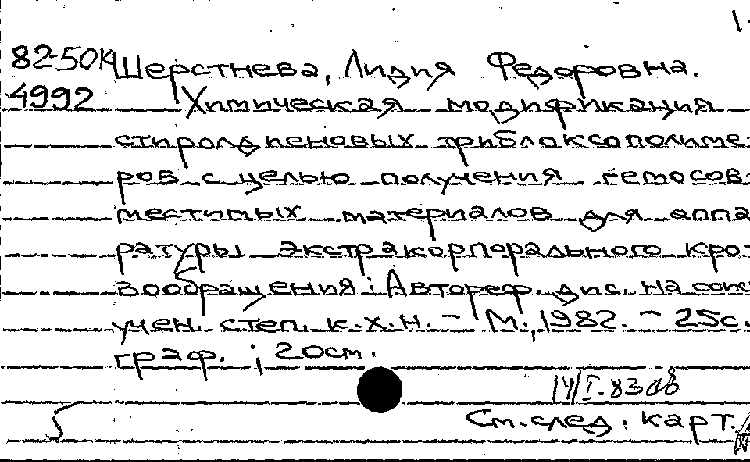 82-50K Шерстнева, Лидия Федоровна.
4992 Химическая модификация
стиролдиеновых триблоксополиме-
ров с целью получения гемосов-
местимых материалов для аппа-
ратуры экстракорпорального кро-
вообращения: Автореф. дис. на соис.
учен. степ. к.х.н. - М., 1982. - 25с.
граф. ; 20см.
Ст. след. карт.